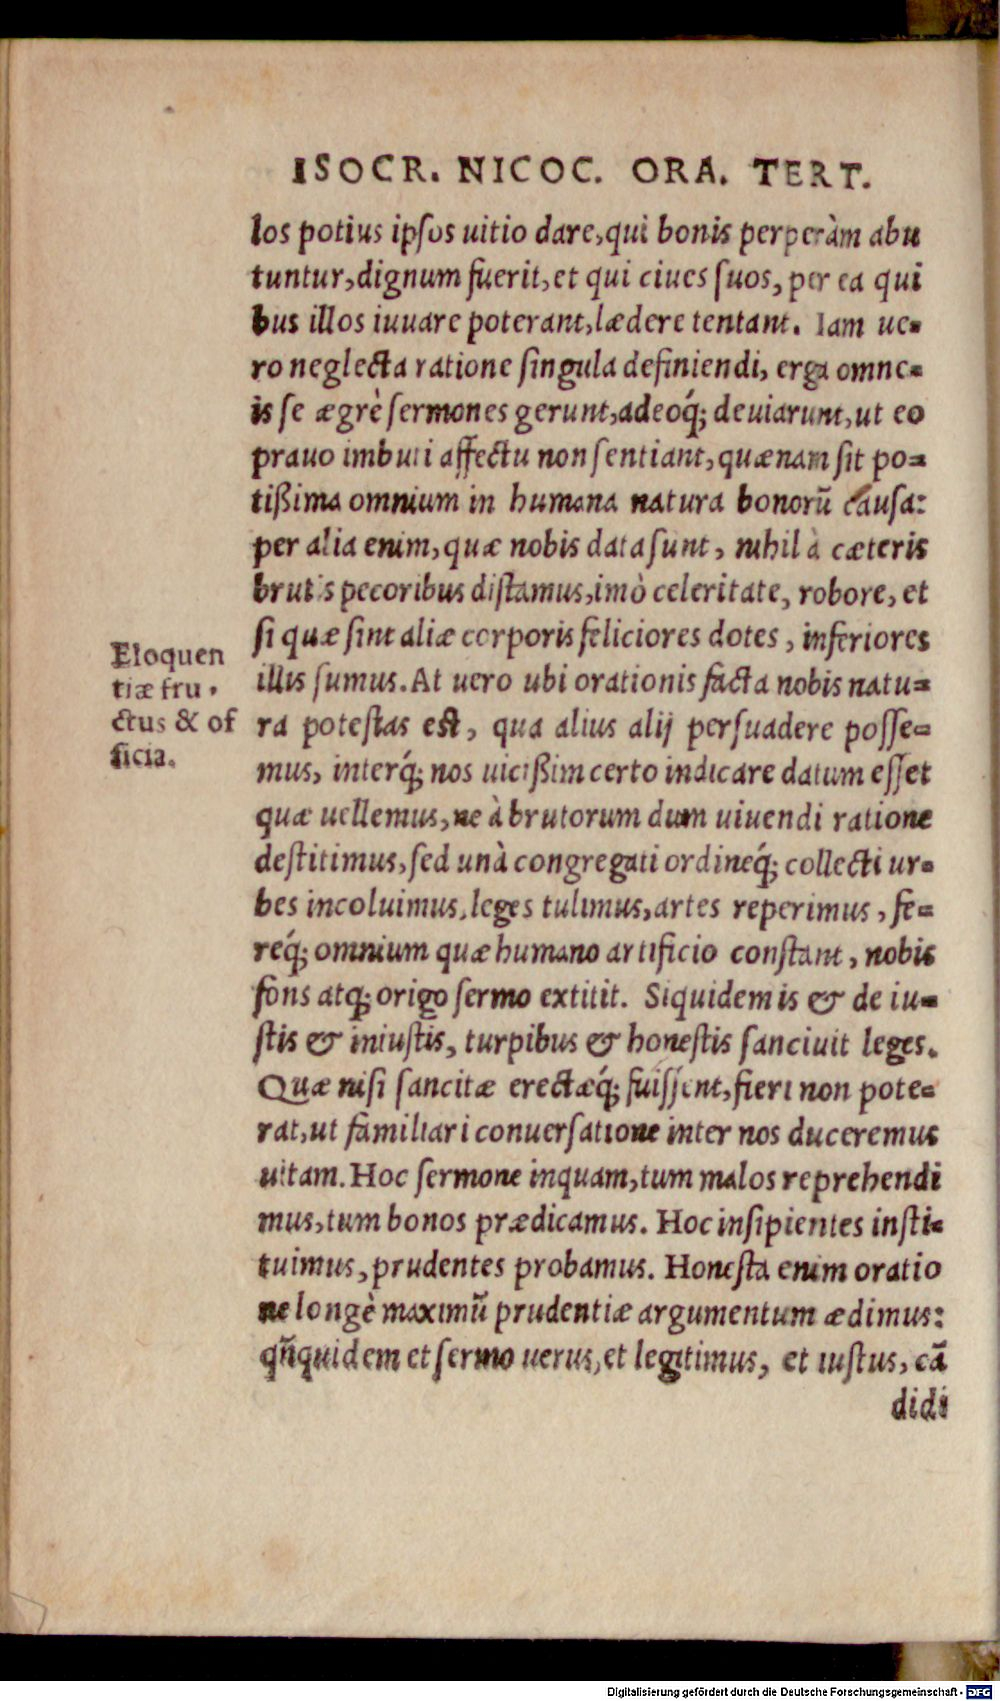 ISOCR. NICOC. ORA. TERT.
los potius ipſos uitio dare, qui bonis perperàm abu
tuntur, dignum fuerit, et qui ciues ſuos, per ea qui
bus illos iuuare poterant, lædere tentant. Iam ue-
ro neglecta ratione ſingula definiendi, erga omne-
is ſe ægrè ſermones gerunt, adeoq́; deuiarunt, ut eo
prauo imbuti affectu non ſentiant, quænam ſit po-
tißima omnium in humana natura bonorũ cauſa:
per alia enim, quæ nobis data ſunt, nihil à cæteris
brutis pecoribus diſtamus, imò celeritate, robore, et
ſi quæ ſint aliæ corporis feliciores dotes, inferiores
illis ſumus. At uero ubi orationis facta nobis natu-
ra poteſtas eſt, qua alius alij perſuadere poſſe-
mus, interq́; nos uicißim certo indicare datum eſſet
quæ uellemus, ne à brutorum dum uiuendi ratione
deſtitimus, ſed unà congregati ordineq́; collecti ur-
bes incoluimus, leges tulimus, artes reperimus, fe-
req́; omnium quæ humano artificio conſtant, nobis
fons atq; origo ſermo extitit. Siquidem is & de iu-
ſtis & iniuſtis, turpibus & honeſtis ſanciuit leges.
Quæ niſi ſancitæ erectæq́; fuiſſent, fieri non pote-
rat, ut familiari conuerſatione inter nos duceremus
uitam. Hoc ſermone inquam, tum malos reprehendi
mus, tum bonos prædicamus. Hoc inſipientes inſti-
tuimus, prudentes probamus. Honeſta enim oratio
ne longè maximũ prudentiæ argumentum ædimus:
qñquidem et ſermo uerus, et legitimus, et iuſtus, cã
didi
Eloquen
tiæ fru-
ctus & of
ficia.
Digitalisierung gefördert durch die Deutsche Forschungsgemeinschaft - DFG